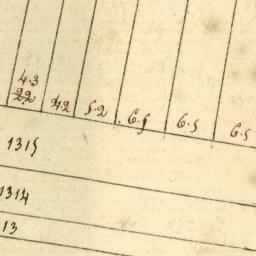 4.3
22 42 5.2 6.5 6.5 6.5
1315
1314
13